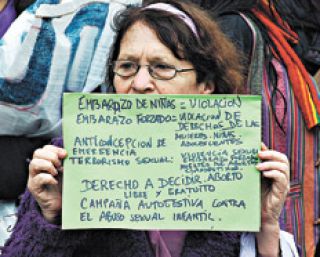 EMBARAZO DE NIÑAS = VIOLACIÓN
EMBARAZO FORZADO = VIOLACIÓN DE
DERECHOS DE LAS
MUJERES-NIÑAS-
ANTICONCEPCION DE ADOLESCENTES
EMERGENCIA
TERRORISMO SEXUAL: VIOLENCIA SEXUAL
EMBARAZO FORZADO
DERECHO A DECIDIR ABORTO
LIBRE Y GRATUITO
CAMPAÑA AUTOGESTIVA CONTRA
EL ABUSO SEXUAL INFANTIL